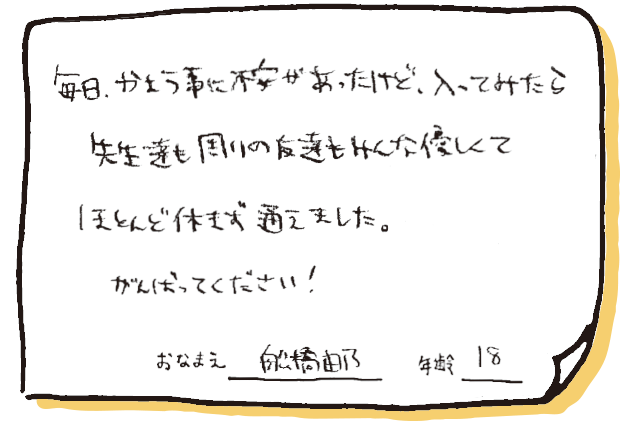 毎日、かよう事に不安があったけど、入ってみたら
先生達も周りの友達もみんな優しくて
ほとんど休まず通えました。
がんばってください!
おなまえ 船橋由乃 年齢 18